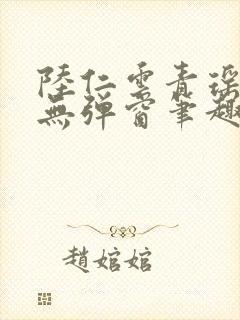 陸仁雲青瑤
無彈窗筆趣
趙婠婠